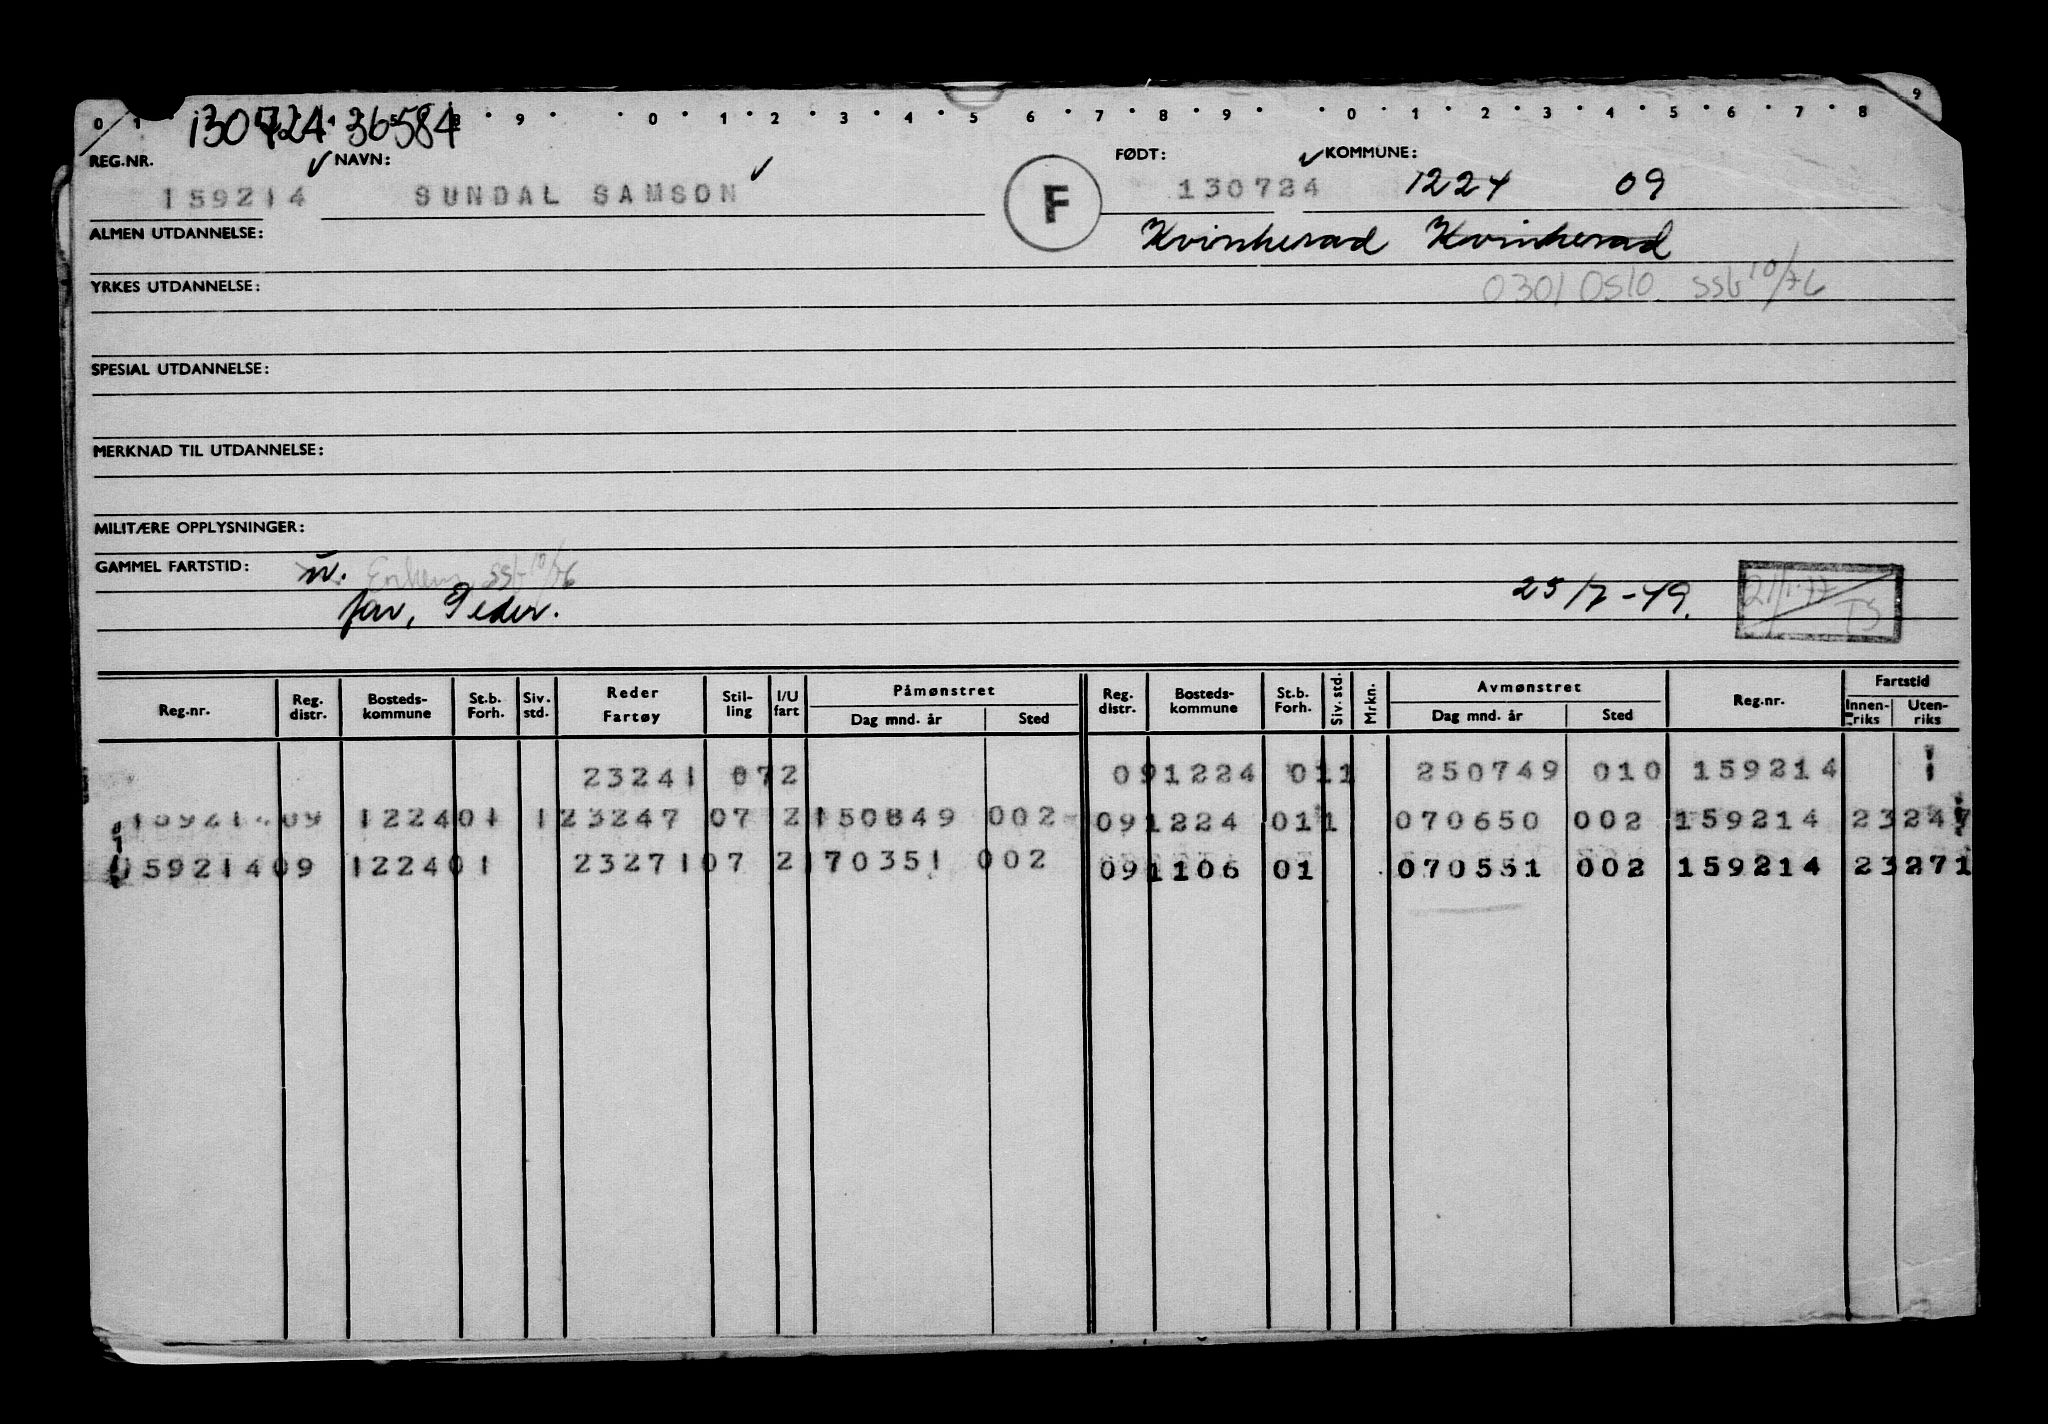 130724 36584
0 1 9 0 1 2 3 4 5 6 7 8 9 0 1 2 3 4 5 6 7 8 9
REG.NR. NAVN: FØDT: KOMMUNE:
159214 SUNDAL SAMSON F 130724 1224 09
ALMEN UTDANNELSE: Kvinherad Kvinherad
YRKES UTDANNELSE: 0301 Oslo ssb 10/76
SPESIAL UTDANNELSE:
MERKNAD TIL UTDANNELSE:
MILITÆRE OPPLYSNINGER:
GAMMEL FARTSTID: ssb 10/76
far, Peder. 25/7-49.
Reg.nr. Reg. distr. Bosteds-kommune St.b. Forh. Siv. std. Reder Fartøy Stil-ling I/U fart Påmønstret Dag mnd. år Sted Reg. distr. Bosteds-kommune St.b. Forh. Siv. std. Mrkn. Avmønstret Dag mnd. år Sted Reg.nr. Fartstid Innen-riks Uten-riks
23241 072 091224 011 250749 010 159214
159214 09 122401 1 23247 07 2 150849 002 091224 011 070650 002 159214 23247
159214 09 122401 23271 07 2 170351 002 091106 01 070551 002 159214 23271